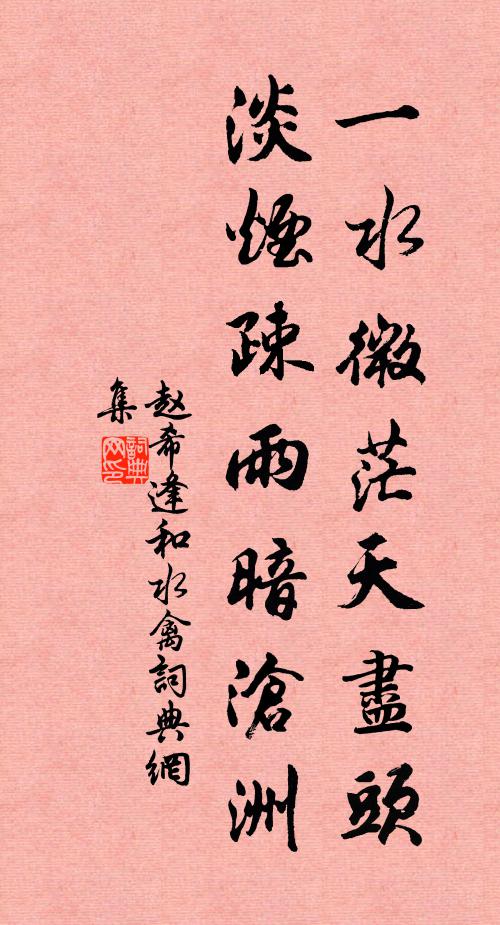 一水微茫天盡頭
淡煙疎雨暗滄洲
赵希逢和水禽詞典網
集
詞典網印